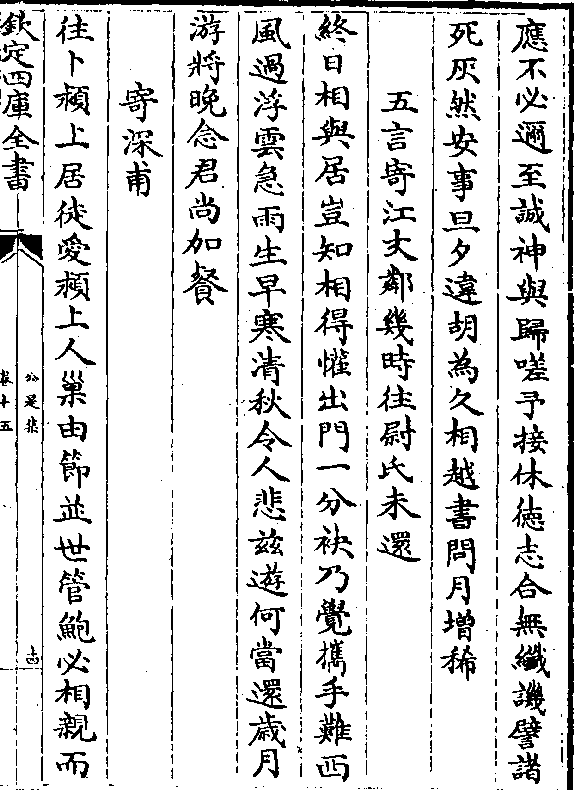 應不必邇至誠神與歸嗟予接休徳志合無纖譏譬諸
死灰然安事旦夕違胡為久相越書問月增稀
五言寄江大鄰幾時往尉氏未還
終日相與居豈知相得懽出門一分袂乃覺攜手難西
風過浮雲急雨生早寒清秋令人悲兹遊何當還歳月
游將晚念君尚加餐
寄深甫
往卜潁上居徒愛潁上人巢由節並世管鮑必相親而
欽定四庫全書
公是集
卷十五